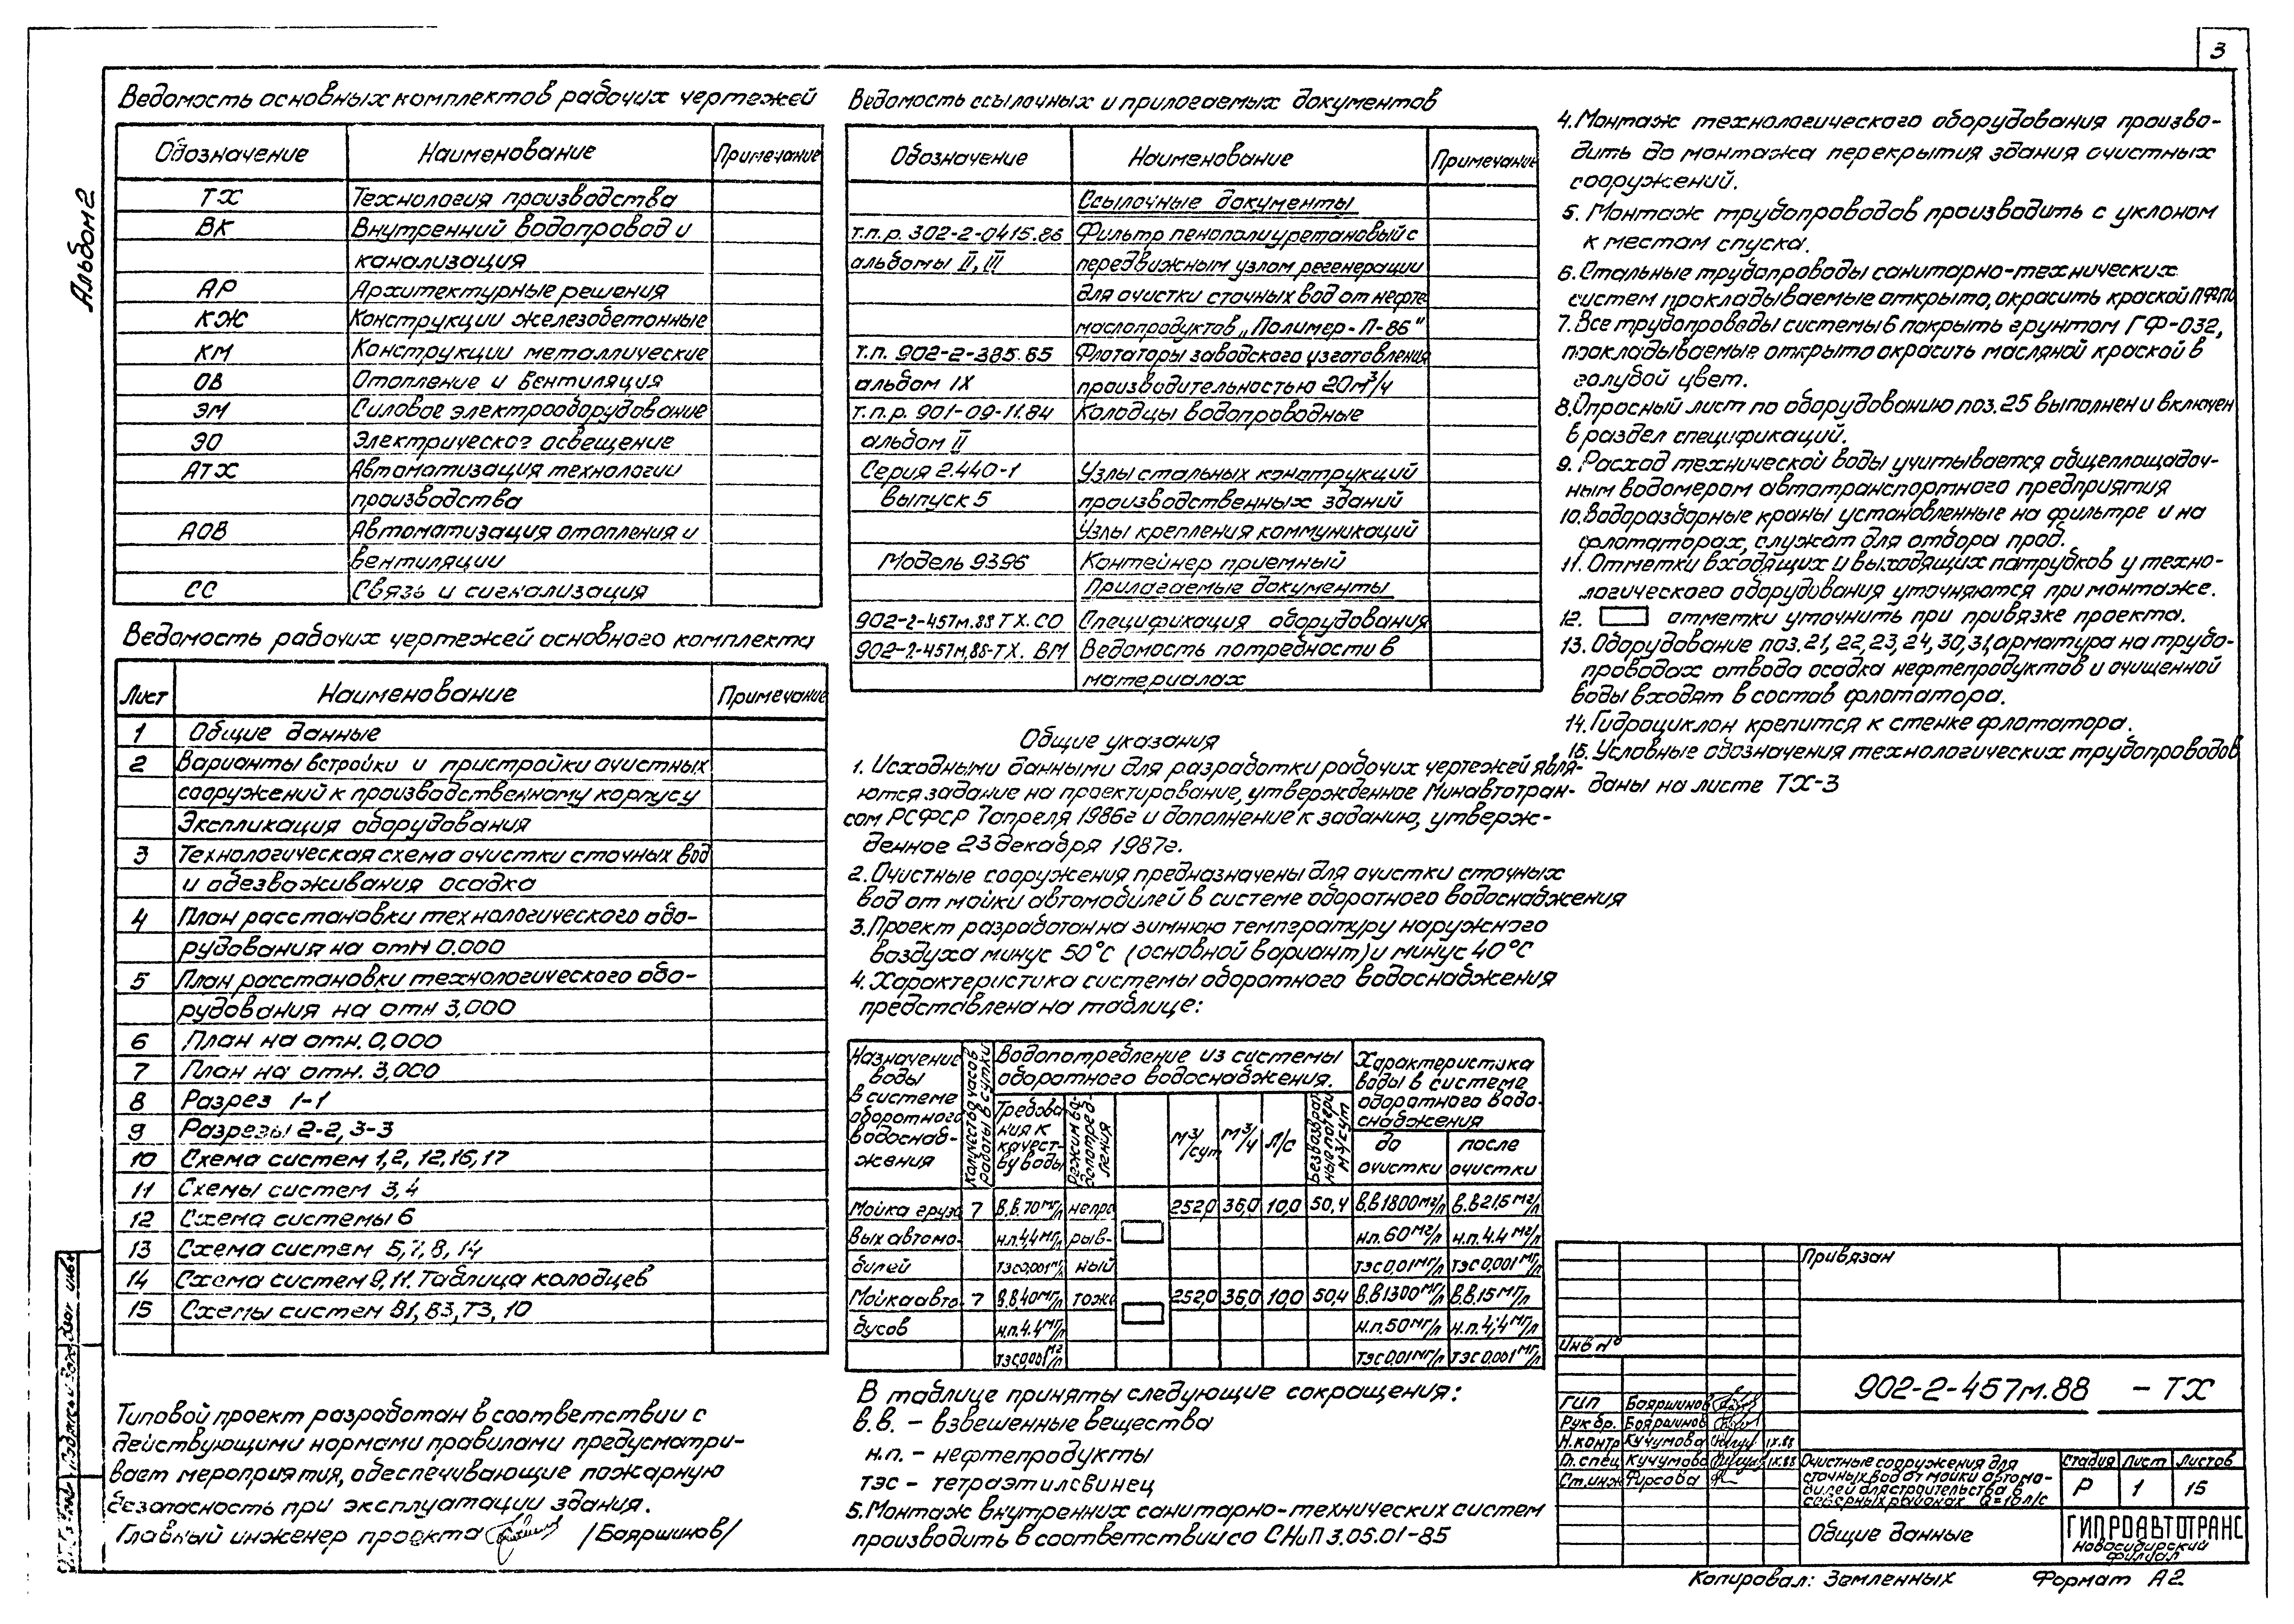 3
Альбом 2
Ведомость основных комплектов рабочих чертежей
Обозначение Наименование Примечание
ТХ Технология производства
ВК Внутренний водопровод и
канализация
АР Архитектурные решения
КЖ Конструкции железобетонные
КМ Конструкции металлические
ОВ Отопление и вентиляция
ЭМ Силовое электрооборудование
ЭО Электрическое освещение
АТХ Автоматизация технологии
производства
АОВ Автоматизация отопления и
вентиляции
СС Связь и сигнализация
Ведомость рабочих чертежей основного комплекта
Лист Наименование Примечание
1 Общие данные
2 Варианты встройки и пристройки очистных
сооружений к производственному корпусу
Экспликация оборудования
3 Технологическая схема очистки сточных вод
и обезвоживания осадка
4 План расстановки технологического обо-
рудования на отн 0.000
5 План расстановки технологического обо-
рудования на отн 3,000
6 План на отн. 0,000
7 План на отн. 3,000
8 Разрез 1-1
9 Разрезы 2-2, 3-3
10 Схема систем 1,2, 12,16,17
11 Схемы систем 3,4
12 Схема системы 6
13 Схема систем 5,7,8,14
14 Схема систем 9,11. Таблица колодцев
15 Схемы систем В1, В3, Т3, 10
Типовой проект разработан в соответствии с
действующими нормами правилами предусматри-
вает мероприятия, обеспечивающие пожарную
безопасность при эксплуатации здания.
Главный инженер проекта /Бояршинов/
Ведомость ссылочных и прилагаемых документов
Обозначение Наименование Примечание
Ссылочные документы
т.п.р. 302-2-0415.86 Фильтр пенополиуретановый с
альбомы II, III передвижным узлом регенерации
для очистки сточных вод от нефте
маслопродуктов „Полимер-П-86"
т.п. 902-2-385.85 Флотаторы заводского изготовления
альбом IX производительностью 20м³/ч
т.п.р. 901-09-11.84 Колодцы водопроводные
альбом II
Серия 2.440-1 Узлы стальных конструкций
выпуск 5 производственных зданий
Узлы крепления коммуникаций
Модель 9396 Контейнер приемный
Прилагаемые документы
902-2-457м.88 ТХ.СО Спецификация оборудования
902-2-457м,88-ТХ. ВМ Ведомость потребности в
материалах
Общие указания
1. Исходными данными для разработки рабочих чертежей явля-
ются задание на проектирование, утвержденное Минавтотран-
сом РСФСР 7 апреля 1986г и дополнение к заданию, утверж-
денное 23 декабря 1987г.
2. Очистные сооружения предназначены для очистки сточных
вод от мойки автомобилей в системе оборотного водоснабжения
3. Проект разработан на зимнюю температуру наружного
воздуха минус 50°С (основной вариант) и минус 40°С
4. Характеристика системы оборотного водоснабжения
представлена на таблице:
Назначение воды в системе оборотного водоснаб-жения
Количество часов работы в сутки
Водопотребление из системы оборотного водоснабжения.
Характеристика воды в системе оборотного водо-снабжения
Требова ния к качест-ву воды
Режим во-допотреб-ления
м3/сут м3/ч л/с
Безвозврат ные потери м3/сут
до очистки после очистки
Мойка грузо 7 В.В. 70 мг/л непре 252,0 36,0 10,0 50,4 В.В 1800 мг/л В.В 21,6 мг/л
вых автомо- н.п. 4,4 мг/л рыв- н.п. 60 мг/л н.п. 4.4 мг/л
билей тэс 0,001 мг/л ный тэс 0,01 мг/л тэс 0,001 мг/л
Мойка авто- 7 В.В. 40 мг/л тоже 252,0 36,0 10,0 50,4 В.В 1300 мг/л В.В. 15 мг/л
бусов н.п. 4.4 мг/л н.п. 50 мг/л н.п. 4,4 мг/л
тэс 0,001 мг/л тэс 0,01 мг/л тэс 0,001 мг/л
В таблице приняты следующие сокращения:
в.в. – взвешенные вещества
н.п. – нефтепродукты
тэс – тетраэтилсвинец
5. Монтаж внутренних санитарно-технических систем
производить в соответствии со СНиП 3.05.01-85
4. Монтаж технологического оборудования произво-
дить до монтажа перекрытия здания очистных
сооружений.
5. Монтаж трубопроводов производить с уклоном
к местам спуска.
6. Стальные трубопроводы санитарно-технических
систем прокладываемые открыто, окрасить краской
7. Все трубопроводы системы 6 покрыть грунтом ГФ-032,
прокладываемые открыто окрасить масляной краской в
голубой цвет.
8. Опросный лист по оборудованию поз. 25 выполнен и включен
в раздел спецификаций.
9. Расход технической воды учитывается общеплощадоч-
ным водомером автотранспортного предприятия
10. Водоразборные краны установленные на фильтре и на
флотаторах, служат для отбора проб.
11. Отметки входящих и выходящих патрубков у техно-
логического оборудования уточняются при монтаже.
12. отметки уточнить при привязке проекта.
13. Оборудование поз. 21, 22, 23, 24, 30, 31, арматура на трубо-
проводах отвода осадка нефтепродуктов и очищенной
воды входят в состав флотатора.
14. Гидроциклон крепится к стенке флотатора.
15. Условные обозначения технологических трубопроводов
даны на листе ТХ-3
Привязан
Инв №
902-2-457м.88 – ТХ
ГИП Бояршинов
Рук бр. Бояршинов
Н.контр Кучумова IX.88
Гл.спец Кучумова IX.88
Ст.инж Фирсова
Очистные сооружения для
сточных вод от мойки автомо-
билей для строительства в
северных районах Q=10л/с
Стадия Лист Листов
Р 1 15
Общие данные
ГИПРОАВТОТРАНС
Новосибирский
филиал
Копировал: Земленных Формат А2